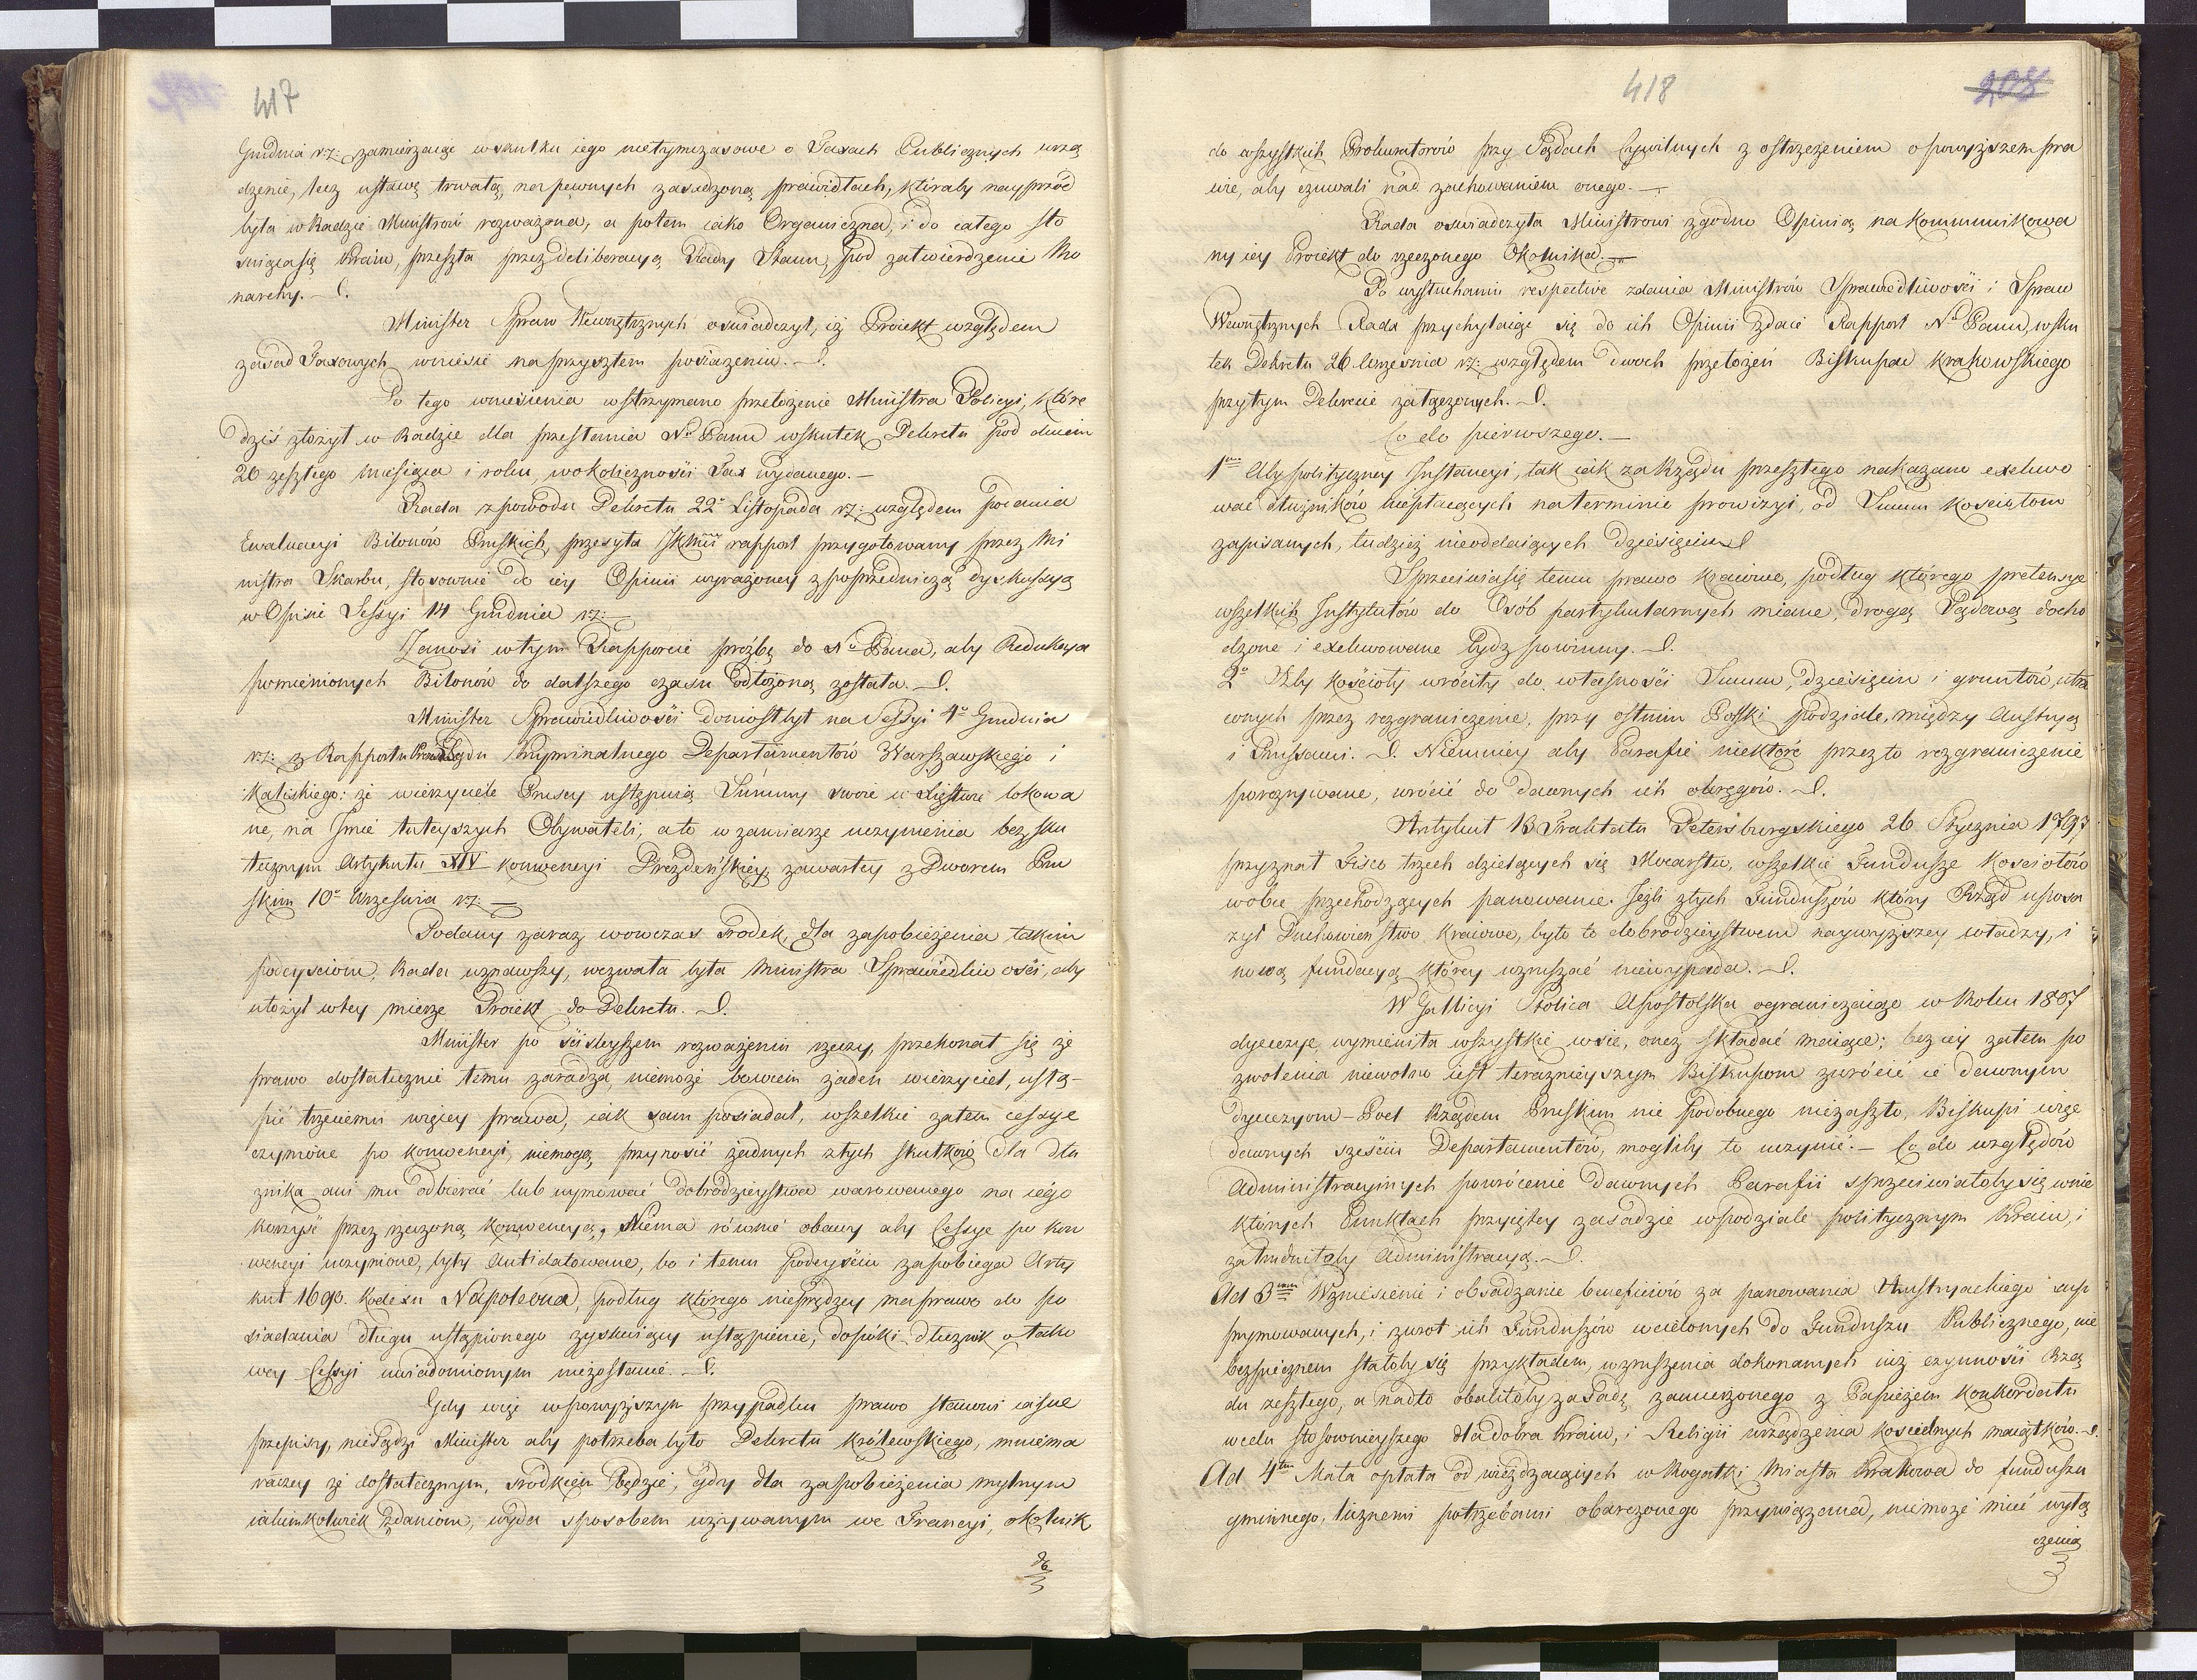 417
Grudnia r:z: zamierzaiąc w skutku iego nietymczasowe o Taxach Publicznych urzą
dzenie, lecz ustawę trwałą, na pewnych zasadzoną prawidłach, któraby nayprzód
była w Radzie Ministrów rozważona, a potem iako Organiczna, i do całego sto
suiąca się Kraiu, przeszła przez deliberacyą Rady Stanu, pod zatwierdzenie Mo
narchy. —
Minister Spraw Wewnętrznych oświadczył, iż Proiekt względem
zasad Taxowych wniesie na przyszłem posiedzeniu. —
Do tego wniesienia wstrzymano przełożenie Ministra Policyi, które
dziś złożył w Radzie dla przesłania No Panu wskutek Dekretu pod dniem
26 zeszłego miesiąca i roku, w okoliczności Tax wydanego. —
Rada z powodu Dekretu 22o Listopada r:z: względem podania
Ewaluacyi Bilonów Pruskich, przesyła JKMci rapport przygotowany przez Mi
nistra Skarbu, stosownie do iey Opinii wyrażoney z poprzedniczą dyskussyą
w Opisie Sessyi 14 Grudnia r:z:
Zanosi w tym Rapporcie prośbę do No Pana, aby Redukcya
pomienionych Bilonów do dalszego czasu odłożoną została. —
Minister Sprawiedliwości doniosł był na Sessyi 4o Grudnia
r:z: z Rapportu Sądu Kryminalnego Departamentów Warszawskiego i
Kaliskiego: że wierzyciele Pruscy ustępuią Summy swoie w Xięstwie lokowa
ne, na Jmie tuteyszych Obywateli, a to w zamiarze uczynienia bezsku
tecznym Artykułu XIV konwencyi Drezdeńskiey, zawartey z Dworem Pru
skim 10o Września r:z: —
Podany zaraz wowczas srodek, dla zapobieżenia takim
podeysciom, Rada uznawszy, wezwała była Ministra Sprawiedliwości, aby
ułożył w tey mierze Proiekt do Dekretu. —
Minister po ściśleyszem rozważeniu rzeczy, przekonał się że
prawo dostatecznie temu zaradza, niemoże bowiem żaden wierzyciel, ustą-
pić trzeciemu więcey prawa, iak sam posiadał, wszelkie zatem cessye
czynione po konwencyi, niemogą przynosić żadnych złych skutków dla dłu
żnika ani mu odbierać lub uymować dobrodzieystwa warowanego na iego
korzyść przez rzeczoną konwencyą, Niema równie obawy aby Cessye po kon
wencyi uczynione, były Antidatowane, bo i temu podeyściu zapobiega Arty
kuł 1690. Kodexu Napoleona, podług którego nieprędzey ma prawo do po
siadania długu ustąpionego zyskuiący ustąpienie, dopóki dłużnik o tako
wey Cessyi uwiadomionym niezostanie. —
Gdy więc w powyższym przypadku prawo stanowi iasne
przepisy, niesądzi Minister aby potrzeba było Dekretu Królewskiego, mniema
raczey że dostatecznym, srodkiem będzie, gdy dla zapobieżenia mylnym
iakimkolwiek zdaniom, wyda sposobem używanym we Francyi, okolnik
do
418
208
do wszystkich Prokuratorów przy Sądach Cywilnych z ostrzeżeniem o powyższem pra
wie, aby czuwali nad zachowaniem onego. —
Rada oświadczyła Ministrowi zgodną Opinią na kommunikowa
ny iey Proiekt do rzeczonego Okolnika. —
Po wysłuchaniu respective zdania Ministrów Sprawiedliwości i Spraw
Wewnętrznych Rada przychylaiąc się do ich Opinii zdaie Rapport No Panu, wsku
tek Dekretu 26 Września r:z: względem dwoch przełożeń Biskupa Krakowskiego
przy tym Dekrecie załączonych. —
Co do pierwszego. —
1mo Aby polityczney Jnstancyi, tak iak za Rządu przeszłego nakazano exekwo
wać dłużników niepłacących na terminie prowizyi, od Summ kosciołom
zapisanych, tudzież nieoddaiących Dziesięcin
Sprzeciwia się temu prawo kraiowe, podług którego pretensye
wszelkich Jnstytutów do Osób partykularnych miane, drogą Sądową docho
dzone i exekwowane bydź powinny. —
2o Aby kościoły wróciły do własności Summ, dziesięcin i gruntów, utra
conych przez rozgraniczenie, przy ostnim Polski podziale, między Austryą
i Prussami. — Niemniey aby Parafie niektóre przez to rozgraniczenie
porozrywane, wrócić do dawnych ich okręgów. —
Artykuł 13 Traktatu Petersburgskiego 26 Stycznia 1797
przyznał Fisco trzech dzielących się Mocarstw, wszelkie Fundusze Kosciołów
w obce przechodzących panowanie. Jeżli z tych Funduszów który Rząd uposa
żył Duchowieństwo kraiowe, było to dobrodzieystwem naywyższey władzy, i
nową fundacyą którey wzruszać niewypada. —
W Gallicyi Stolica Apostolska ograniczaiąc w Roku 1807
dyecezye, wymieniła wszystkie wsie, oneż składać maiące; bez iey zatem po
zwolenia niewolno iest teraznieyszym Biskupom zwrócić ie dawnym
dyecezyom — Pod Rządem Pruskim nic podobnego niezaszło, Biskupi więc
dawnych sześciu Departamentów, mogliby to uczynić. — Co do względów
Administracyinych powrócenie dawnych Parafii sprzeciwiałoby się w nie
których Punktach przyiętey zasadzie w podziale politycznym Kraiu, i
zatrudniłoby Administracyą. —
Ad 3ium Wzniesienie i obsadzanie beneficiów za panowania Austryackiego sup
prymowanych, i zwrot ich Funduszów wcielonych do Funduszu Publicznego, nie
bezpiecznem stałoby się przykładem, wzruszenia dokonanych iuż czynności Rzą
du zeszłego, a nadto obaliłoby zasadę zamierzonego z Papieżem Konkordatu
w celu stosownieyszego dla dobra Kraiu, i Religii urządzenia koscielnych maiątków. —
Ad 4tum Mała opłata od wieżdzaiących w Rogatki Miasta Krakowa do funduszu
gminnego, licznemi potrzebami obarczonego przywiązana, niemoże mieć wyłą
czenia